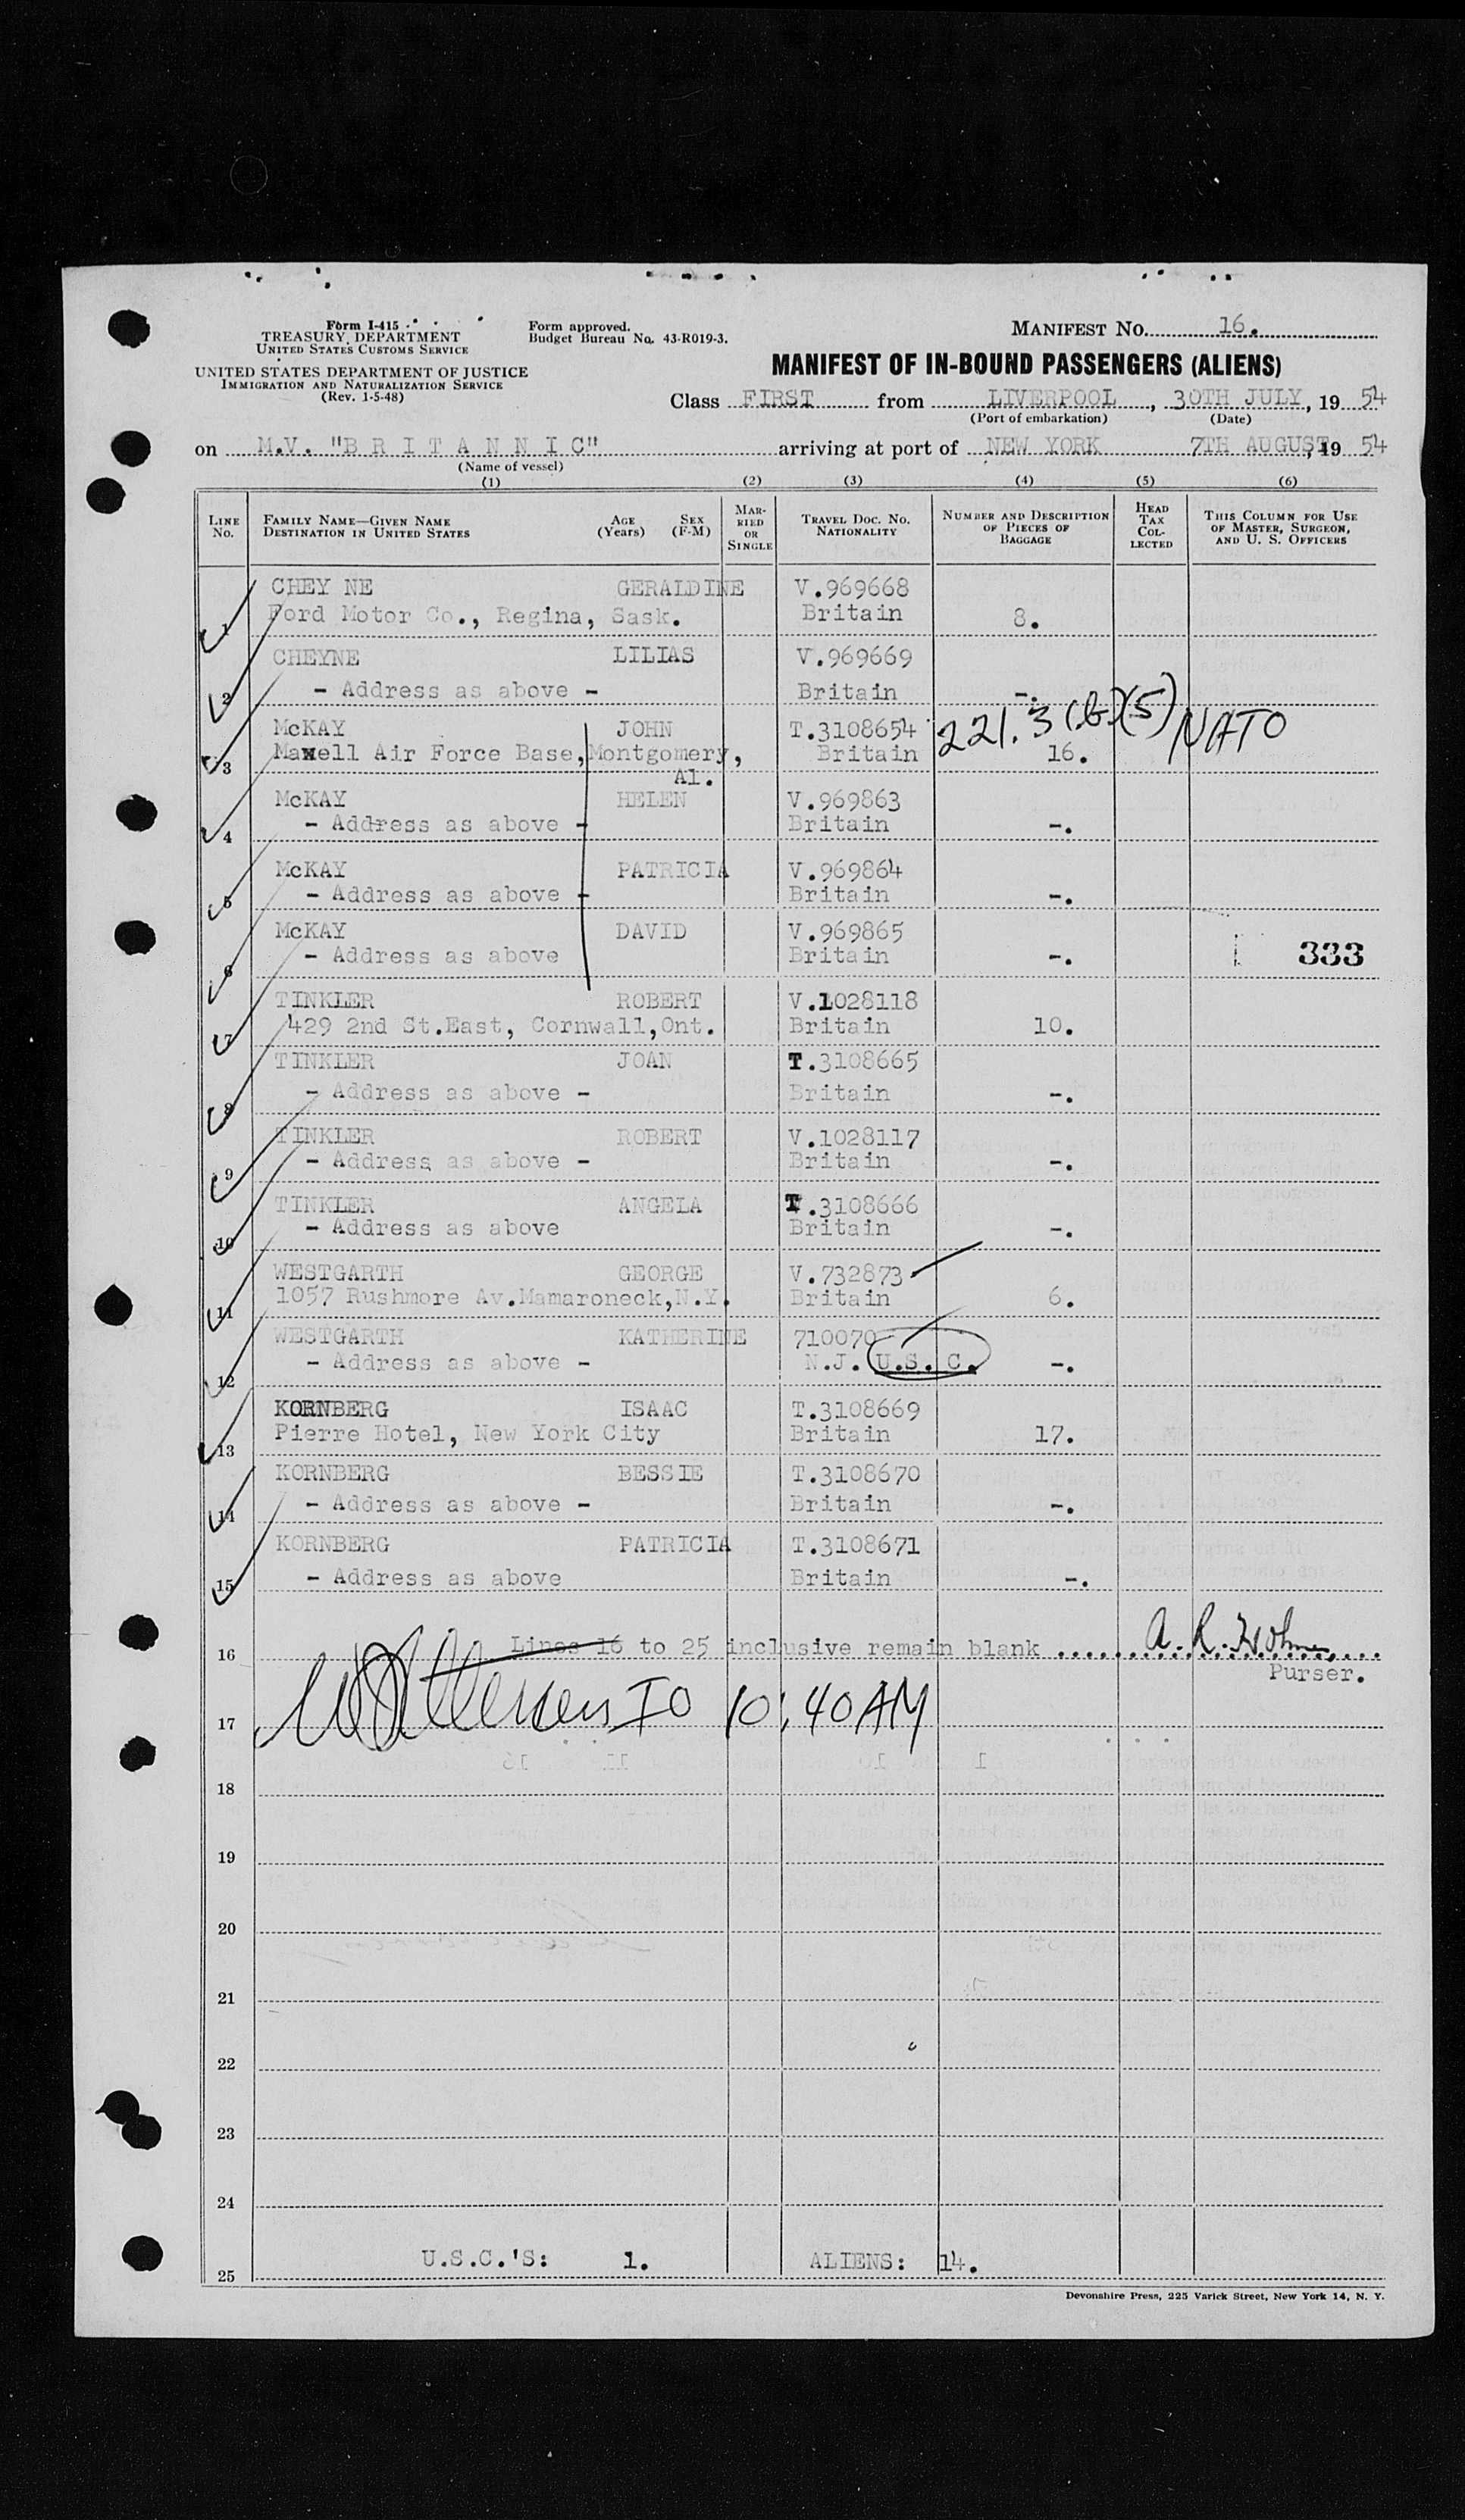 Form I-415
TREASURY DEPARTMENT
UNITED STATES CUSTOMS SERVICE
UNITED STATES DEPARTMENT OF JUSTICE
IMMIGRATION AND NATURALIZATION SERVICE
(Rev. 1-5-48)
Form approved.
Budget Bureau No. 43-R019-3.
MANIFEST No. 16.
MANIFEST OF IN-BOUND PASSENGERS (ALIENS)
Class FIRST from LIVERPOOL, 30TH JULY, 19 54
(Port of embarkation) (Date)
on M.V. "B R I T A N N I C" arriving at port of NEW YORK 7TH AUGUST, 19 54
(Name of vessel)
(1) (2) (3) (4) (5) (6)
LINE No. FAMILY NAME—GIVEN NAME DESTINATION IN UNITED STATES AGE (Years) SEX (F-M) MARRIED OR SINGLE TRAVEL DOC. NO. NATIONALITY NUMBER AND DESCRIPTION OF PIECES OF BAGGAGE HEAD TAX COLLECTED THIS COLUMN FOR USE OF MASTER, SURGEON, AND U. S. OFFICERS
CHEY NE GERALDINE V.969668
1 Ford Motor Co., Regina, Sask. Britain 8.
CHEYNE LILIAS V.969669
2 - Address as above - Britain -.
McKAY JOHN T.3108654 221.3(b)(5) NATO
3 Maxwell Air Force Base, Montgomery, Britain 16.
Al.
McKAY HELEN V.969863
4 - Address as above - Britain -.
McKAY PATRICIA V.969864
5 - Address as above - Britain -.
McKAY DAVID V.969865
6 - Address as above Britain -. 333
TINKLER ROBERT V.1028118
7 429 2nd St.East, Cornwall,Ont. Britain 10.
TINKLER JOAN T.3108665
8 - Address as above - Britain -.
TINKLER ROBERT V.1028117
9 - Address as above - Britain -.
TINKLER ANGELA T.3108666
10 - Address as above Britain -.
WESTGARTH GEORGE V.732873
11 1057 Rushmore Av.Mamaroneck,N.Y. Britain 6.
WESTGARTH KATHERINE 710070
12 - Address as above - N.J. U.S.C. -.
KORNBERG ISAAC T.3108669
13 Pierre Hotel, New York City Britain 17.
KORNBERG BESSIE T.3108670
14 - Address as above - Britain -.
KORNBERG PATRICIA T.3108671
15 - Address as above Britain -.
16 Lines 16 to 25 inclusive remain blank ..... A. R.
Purser.
17 IO 10:40 AM
18
19
20
21
22
23
24
25 U.S.C.'S: 1. ALIENS: 14.
Devonshire Press, 225 Varick Street, New York 14, N. Y.